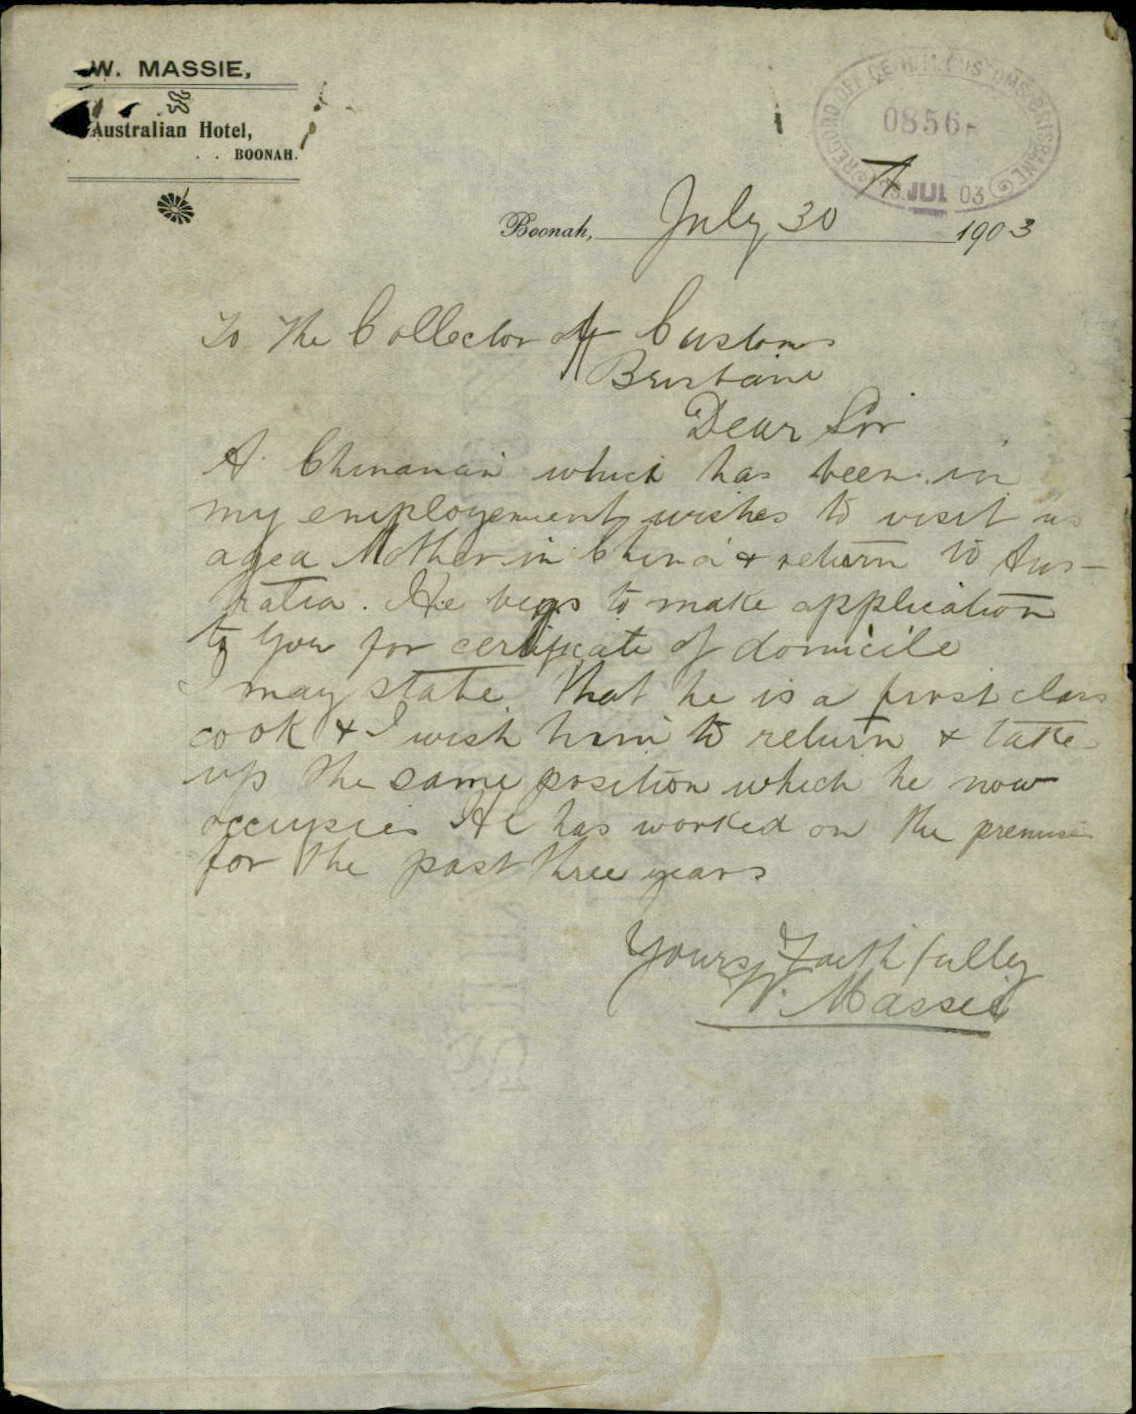 W. MASSIE,
Australian Hotel,
. . BOONAH.
RECORD OFFICE H.M. CUSTOMS BRISBANE
0856
JUL 03
Boonah, July 30 1903
To The Collector of Customs
Brisbane
Dear Sir
A Chinaman which has been in
my employement wishes to visit is
aged Mother in China & return to Aus-
tralia. He begs to make application
to you for certificate of domicile
I may state that he is a first class
cook & I wish him to return & take
up the same position which he now
occupies He has worked on the premises
for the past three years
Yours Faithfully
W. Massie